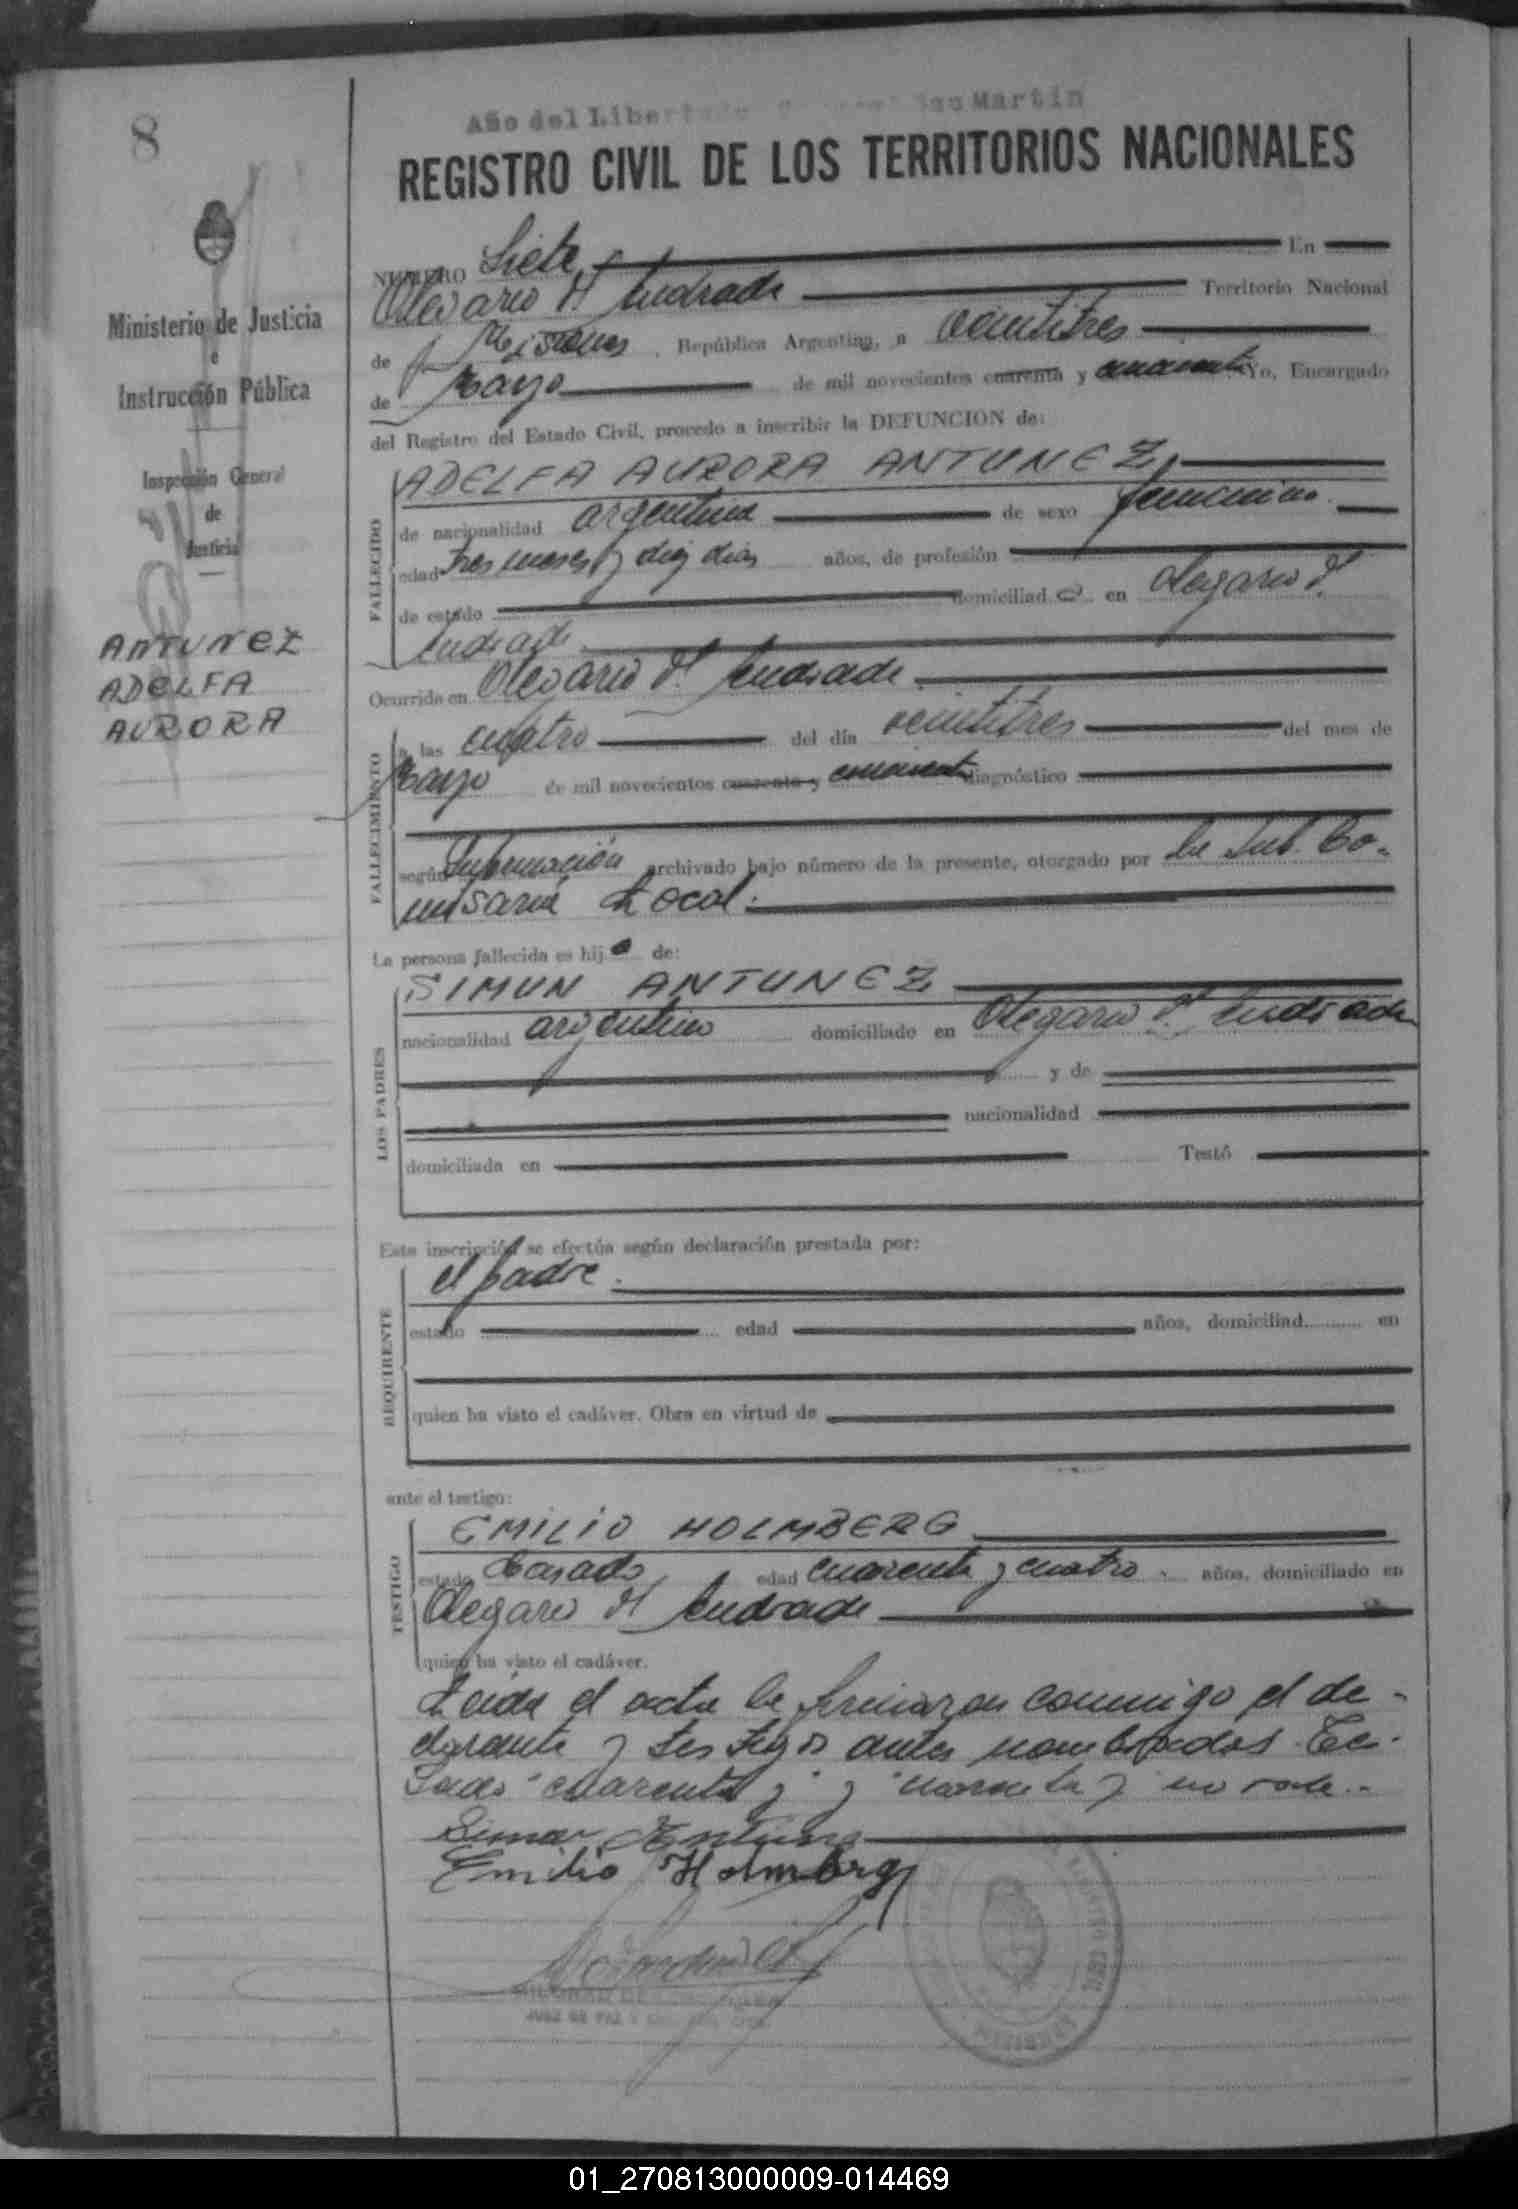 8
Año del Libertador General San Martin
REGISTRO CIVIL DE LOS TERRITORIOS NACIONALES
Ministerio de Justicia
e
Instrucción Pública
Inspección General
de
Justicia
ANTUNEZ
ADELFA
AURORA
NUMERO Siete En
Olegario V. Andrade Territorio Nacional
de Misiones, República Argentina, a veintitres
de Mayo de mil novecientos cuarenta y cincuenta Yo, Encargado
del Registro del Estado Civil, procedo a inscribir la DEFUNCION de:
FALLECIDO
ADELFA AURORA ANTUNEZ,
de nacionalidad argentina de sexo femenino.
edad tres meses y diez dias años, de profesión
de estado domiciliada en Olegario V.
Andrade
Ocurrido en Olegario V. Andrade.
FALLECIMIENTO
a las cuatro del día veintitres del mes de
Mayo de mil novecientos cuarenta y cincuenta diagnóstico
según Información archivado bajo número de la presente, otorgado por la Sub. Co-
misaria Local.
La persona fallecida es hija de:
LOS PADRES
SIMUN ANTUNEZ
nacionalidad argentino domiciliado en Olegario V. Andrade
y de
nacionalidad
domiciliada en Testó
Esta inscripción se efectúa según declaración prestada por:
REQUIRENTE
el padre.
estado edad años, domiciliad en
quien ha visto el cadáver. Obra en virtud de
ante el testigo:
TESTIGO
EMILIO HOLMBERG
estado Casado edad cuarenta y cuatro años, domiciliado en
Olegario V. Andrade
quien ha visto el cadáver.
Leida el acta la firmaron conmigo el de-
clarante y testigos antes nombrados. Tes-
tado "cuarenta y" y "cuarenta y" no vale.-
Simon Antunez
Emilio Holmberg
JUEZ DE PAZ
REGISTRO CIVIL
01_270813000009-014469